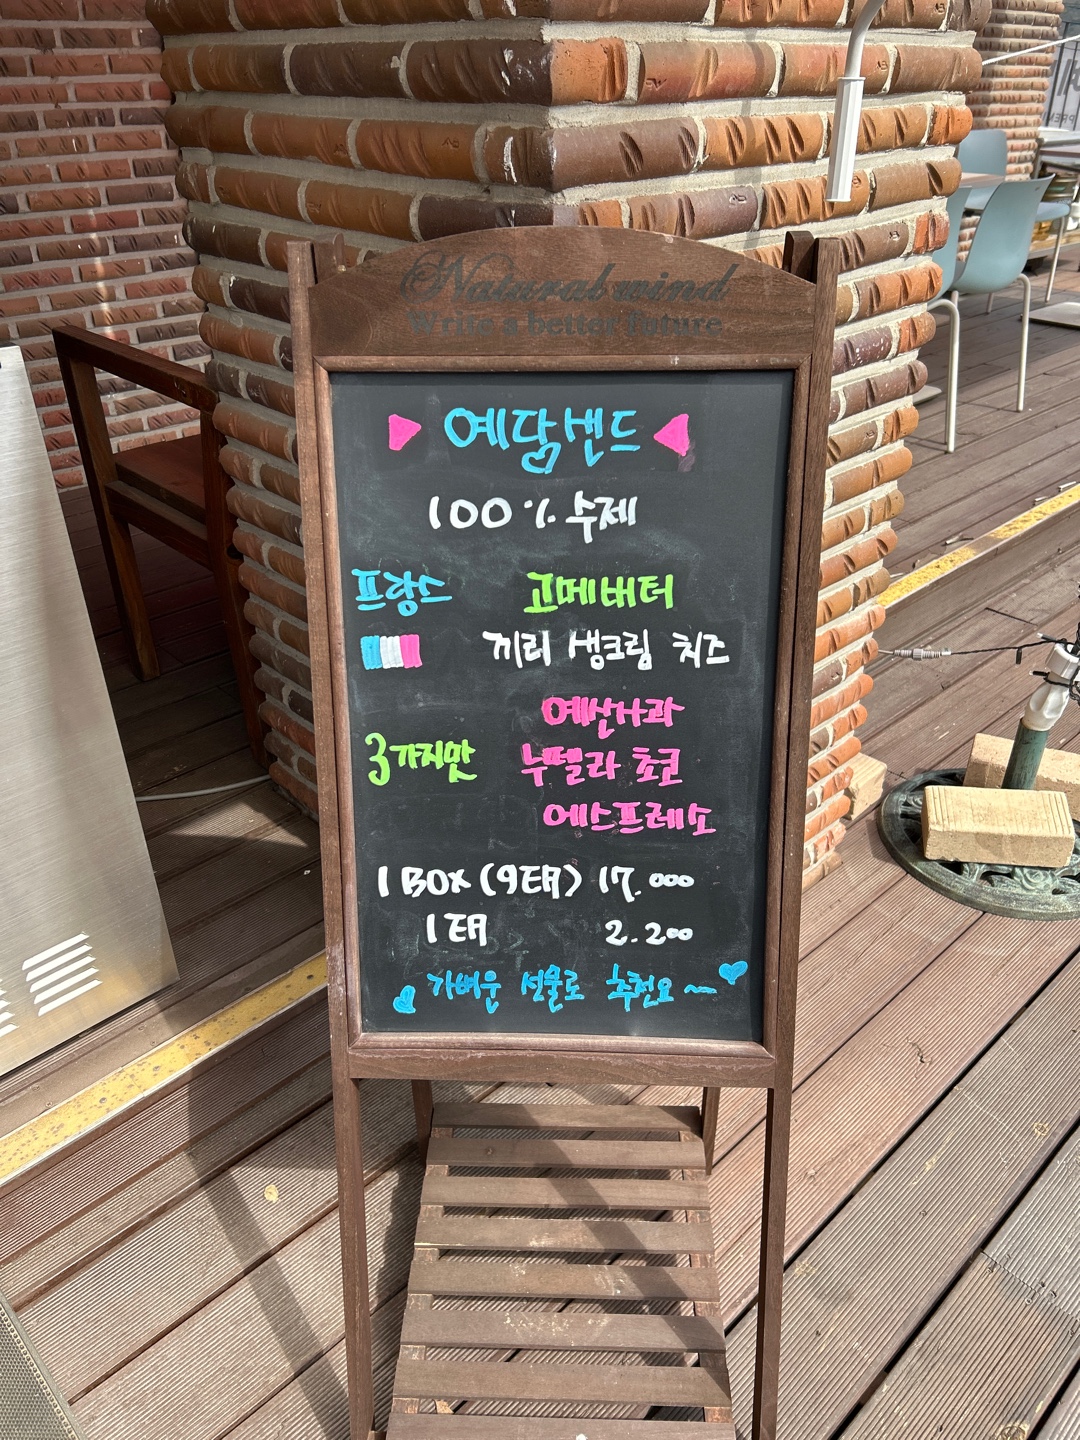 Natural wind
Write a better future
예담샌드
100% 수제
프랑스 고메버터
끼리 생크림 치즈
예산사과
3가지맛 누텔라 초코
에스프레소
1 BOX (9EA) 17.000
1 EA 2.200
가벼운 선물로 추천요~